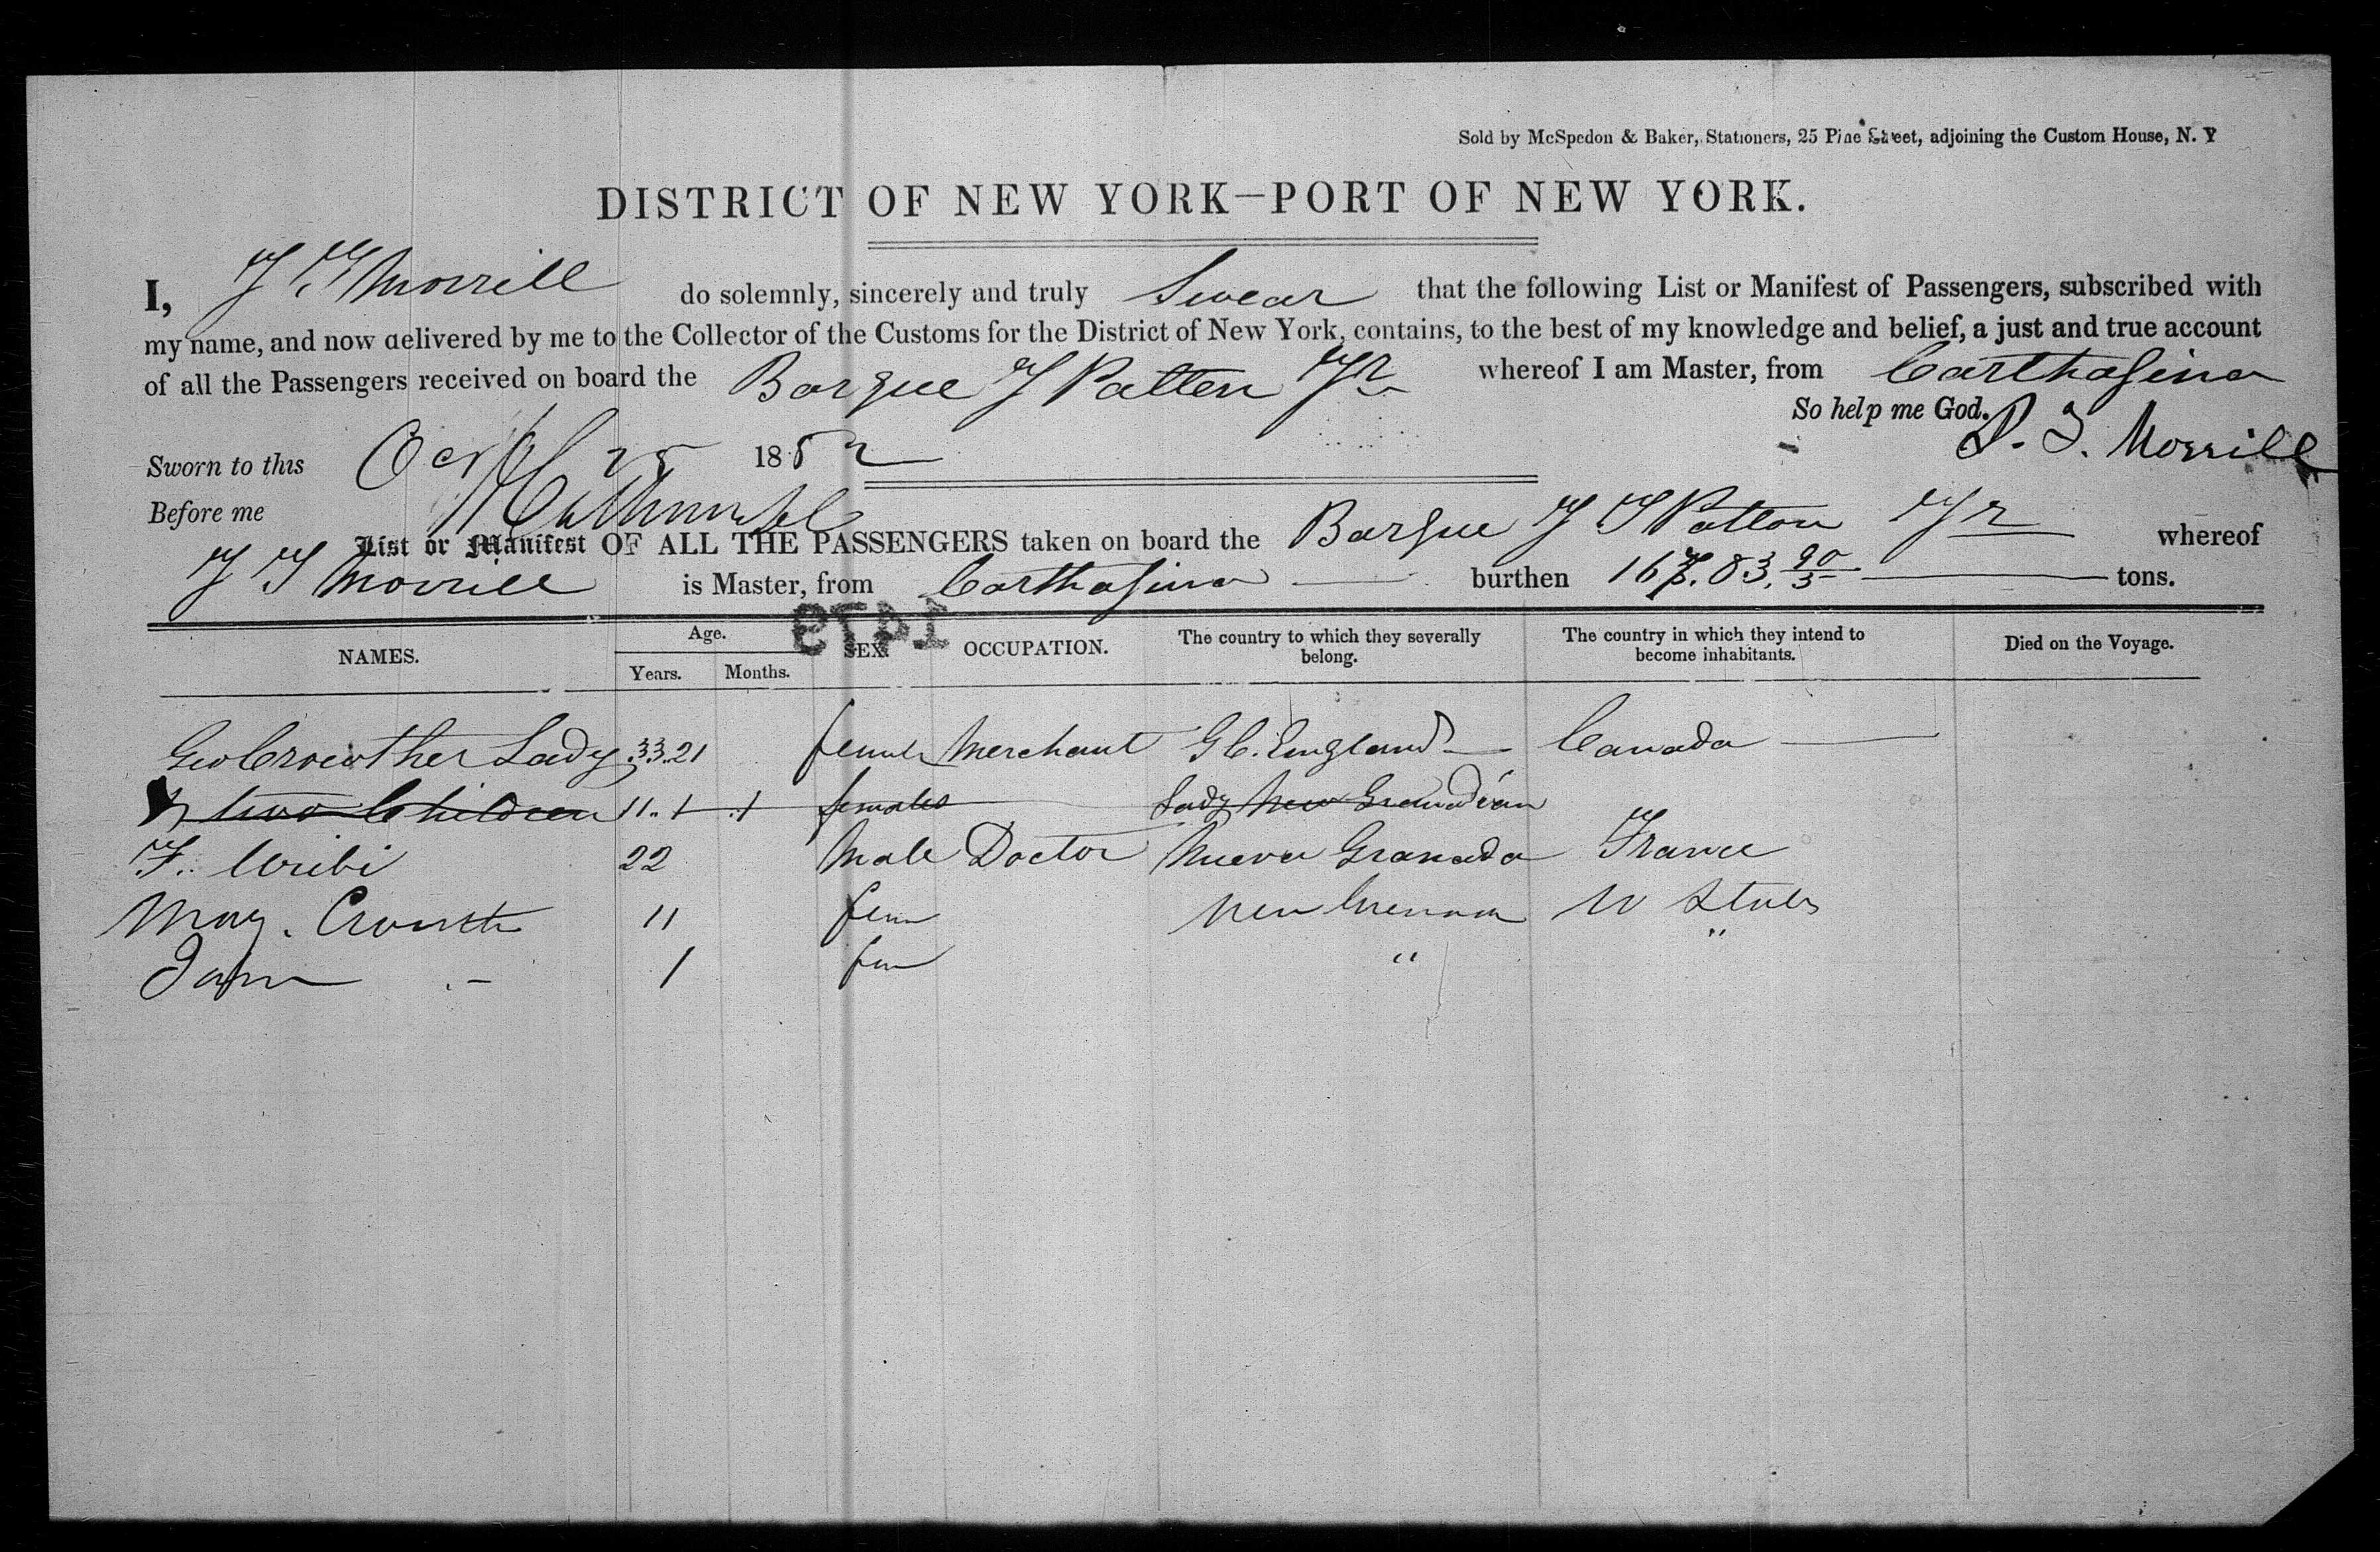 Sold by McSpedon & Baker, Stationers, 25 Pine Street, adjoining the Custom House, N. Y
DISTRICT OF NEW YORK—PORT OF NEW YORK.
I, J T Morrill do solemnly, sincerely and truly Swear that the following List or Manifest of Passengers, subscribed with
my name, and now delivered by me to the Collector of the Customs for the District of New York, contains, to the best of my knowledge and belief, a just and true account
of all the Passengers received on board the Barque J Patten Jr whereof I am Master, from Carthagina
So help me God. J. T. Morrill
Sworn to this Oct 25 1852
Before me
List or Manifest OF ALL THE PASSENGERS taken on board the Barque J T Patton Jr whereof
J T Morrill is Master, from Carthagina burthen tons.
NAMES. Age. Years. Months. SEX. OCCUPATION. The country to which they severally belong. The country in which they intend to become inhabitants. Died on the Voyage.
Geo Crowther Lady 33..21 female Merchant G B. England Canada
two Children 11..1 females Lady New Granadian
F. Uribi 22 Male Doctor Nueva Granada France
Mary. Crowth 11 fem New Grenada U States
Jane 1 fem " "